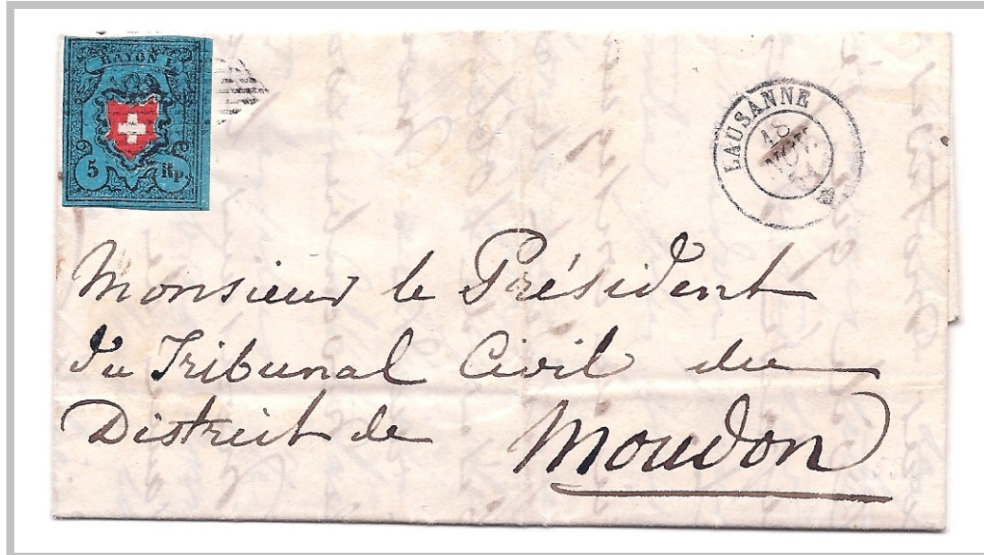 RAYON I
5 Rp.
LAUSANNE
18
NOV.
Monsieur le Président
du Tribunal Civil du
District de Moudon